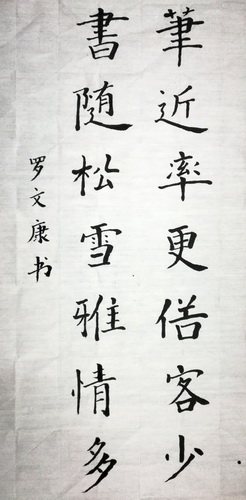 筆近率更俗客少
書隨松雪雅情多
罗文康书